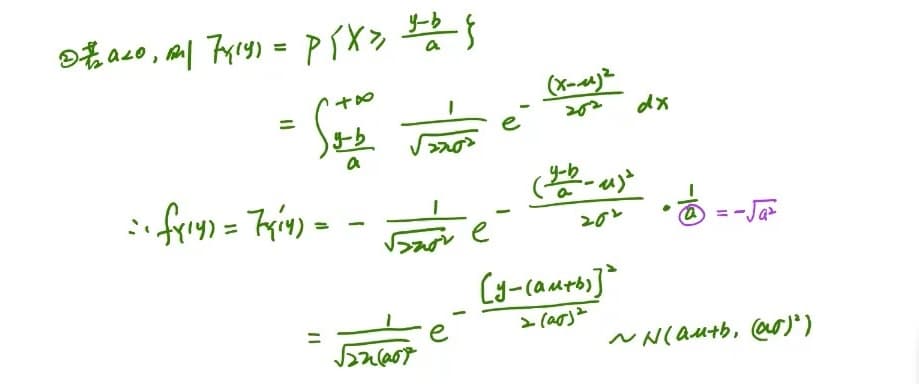 ②若a<0, 则 F_Y(y) = P{X ≥ \frac{y-b}{a}}
= \int_{\frac{y-b}{a}}^{+∞} \frac{1}{\sqrt{2πσ^2}} e^{-\frac{(x-μ)^2}{2σ^2}} dx
∴ f_Y(y) = F_Y'(y) = - \frac{1}{\sqrt{2πσ^2}} e^{-\frac{(\frac{y-b}{a}-μ)^2}{2σ^2}} · \frac{1}{a} = -\sqrt{a^2}
= \frac{1}{\sqrt{2π(aσ)^2}} e^{-\frac{[y-(aμ+b)]^2}{2(aσ)^2}} ~ N(aμ+b, (aσ)^2)